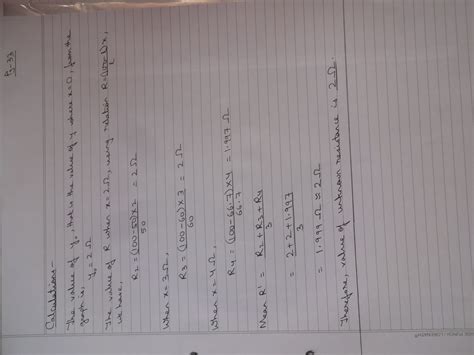 Pg-33
Calculations -
The value of Y₀, that is the value of y where x=0, from the
graph is,
Y₀ = 2 Ω
The value of R when x=2Ω, using relation R=(100-l)x,
l
we have,
R₂ = (100-50)×2 = 2 Ω
50
When x = 3Ω,
R₃ = (100-60)×3 = 2 Ω
60
When x = 4Ω,
R₄ = (100-66.7)×4 = 1.997 Ω
66.7
Mean R' = R₂ + R₃ + R₄
3
= 2 + 2 + 1.997
3
= 1.999 Ω ≈ 2 Ω
Therefore, value of unknown resistance is 2 Ω.